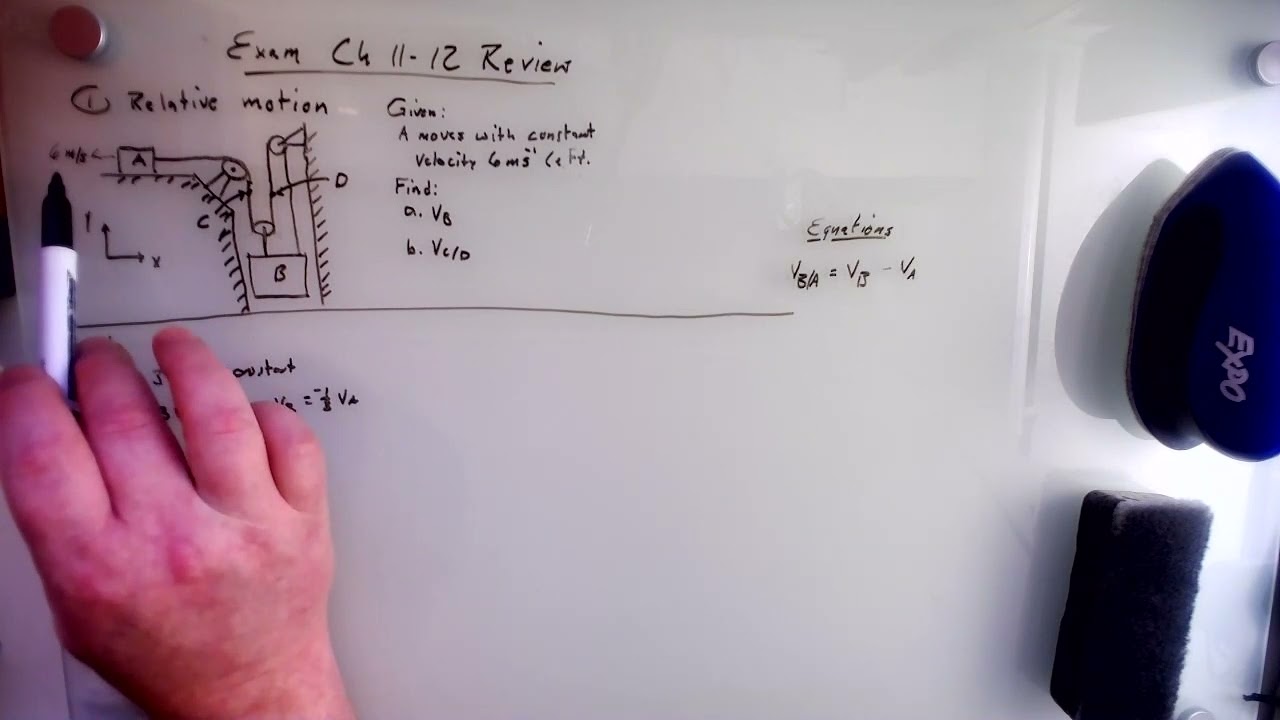 Exam Ch 11-12 Review
① Relative motion
6 m/s
A
D
C
Y
x
B
Given:
A moves with constant
velocity 6 ms⁻¹ left.
Find:
a. V_B
b. V_C/D
Equations
V_B/A = V_B - V_A
V_B = -1/3 V_A
EXPO